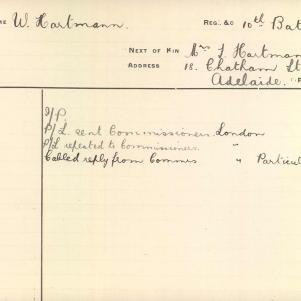 ME W. Hartmann. REG. &c 10th Bat
NEXT OF KIN Mrs J. Hartman
ADDRESS 18. Chatham St
Adelaide.
I/P.
P/L sent Commissioners London
P/L repeated to Commissioners. "
Cabled reply from Commrs " Particul